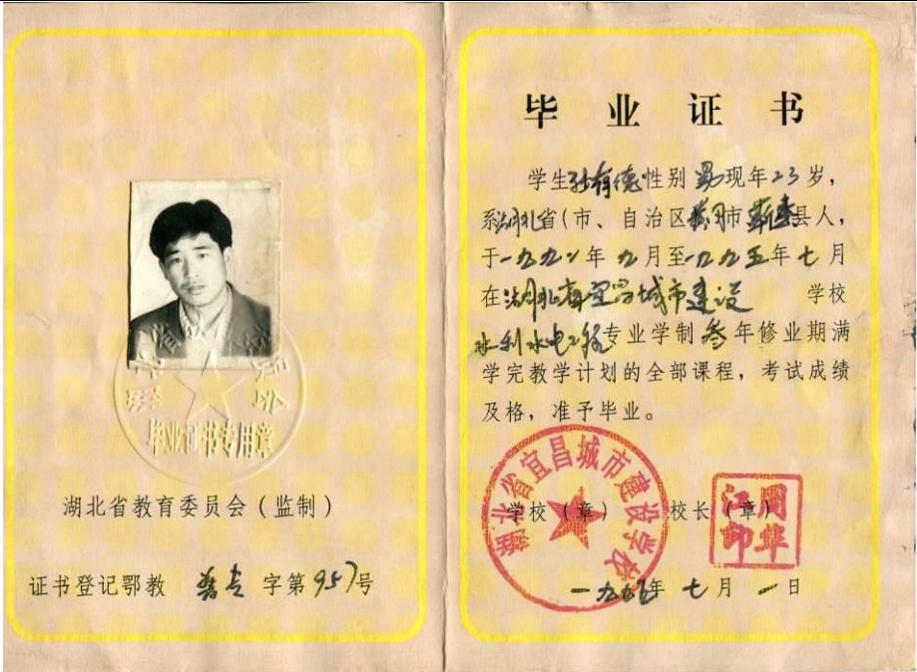 湖北省教育委员会
毕业证书专用章
湖北省教育委员会（监制）
证书登记鄂教 普专 字第957号
毕业证书
学生孙有德性别男现年23岁，
系湖北省（市、自治区黄冈市蕲春县人，
于一九九二年九月至一九九五年七月
在湖北省宜昌城市建设 学校
水利水电工程专业学制叁年修业期满
学完教学计划的全部课程，考试成绩
及格，准予毕业。
湖北省宜昌城市建设学校
学校（章） 校长（章）
江 周
印 华
一九九五年七月一日